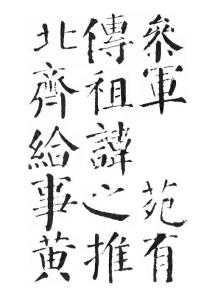 參軍 苑有
傳祖諱之推
北齊給事黄